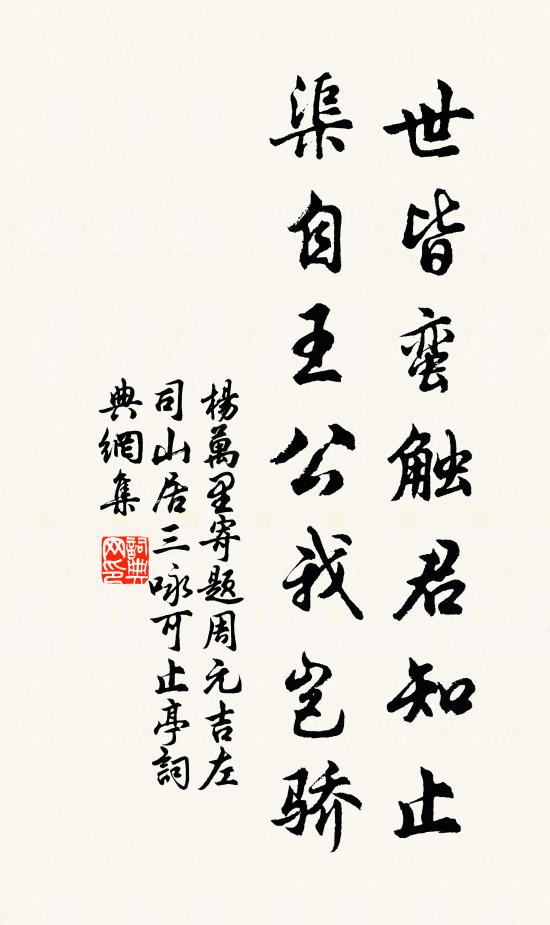 世皆蛮触君知止
渠自王公我岂骄
楊萬里寄題周元吉左
司山居三咏可止亭詞
典網集
詞典网印